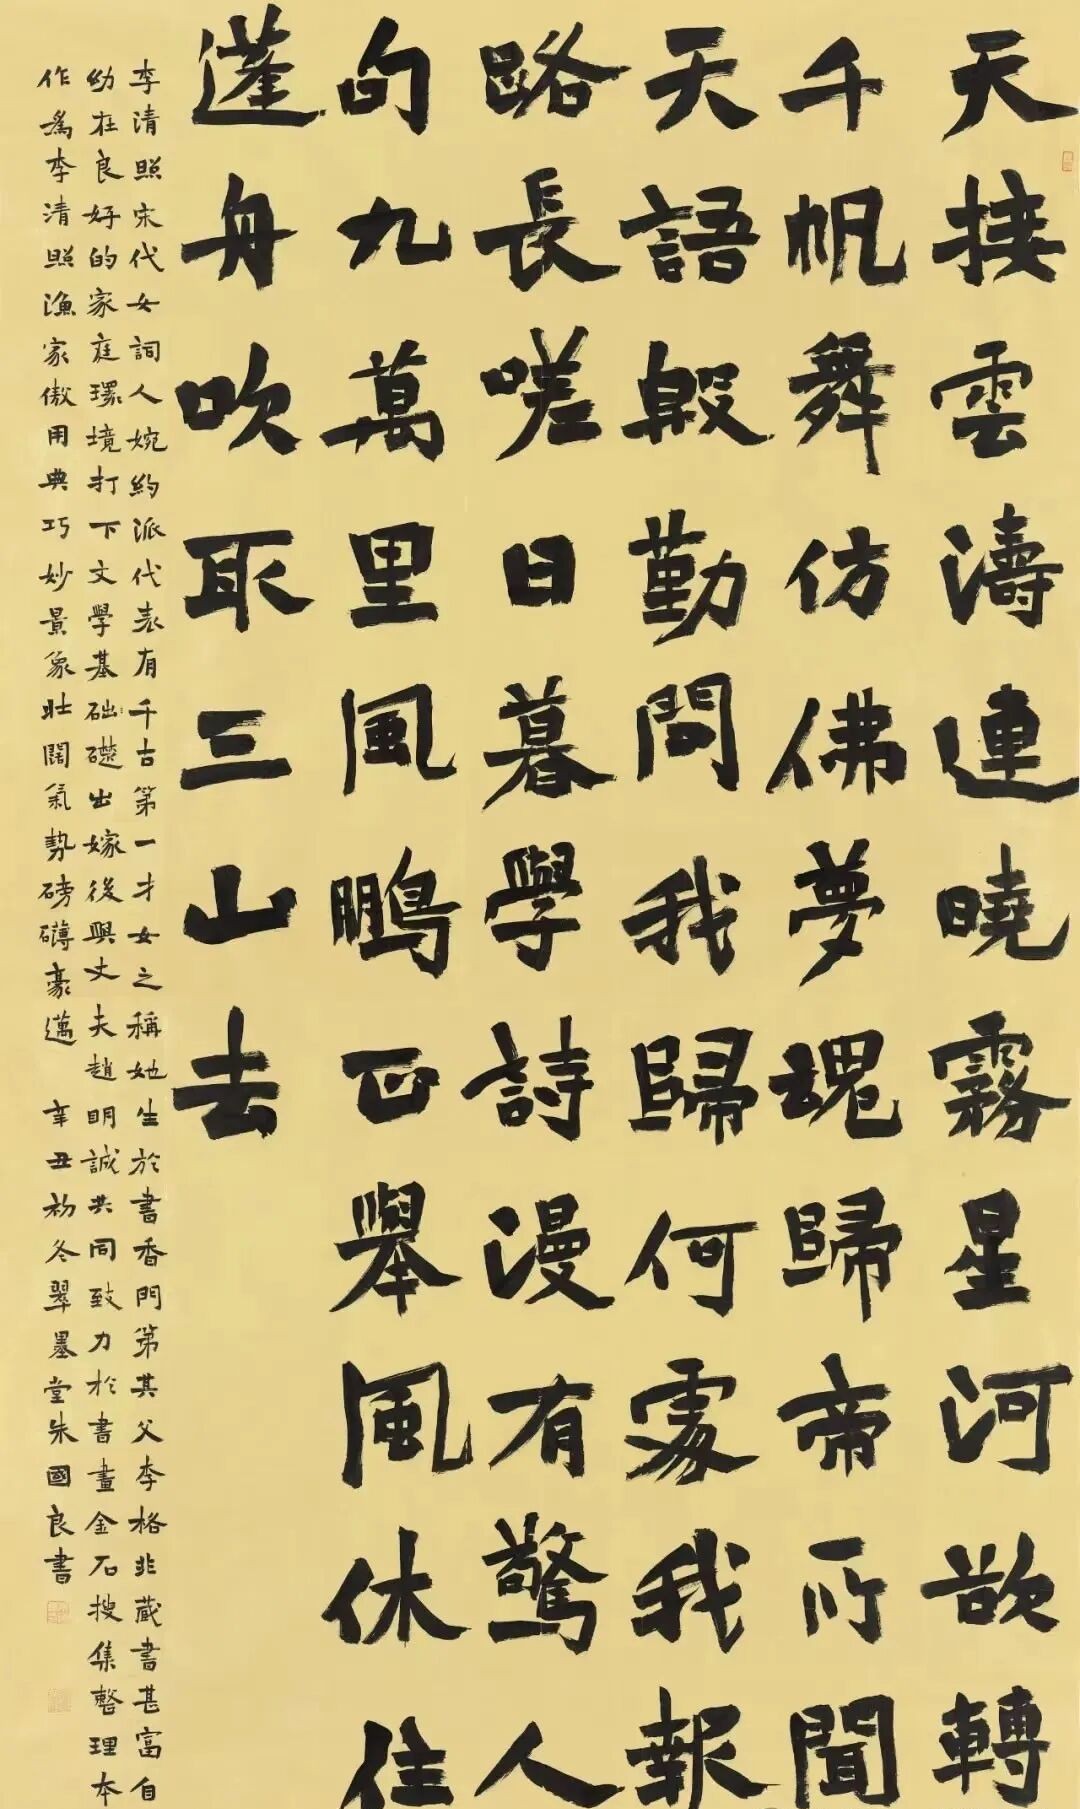 天接雲濤連曉霧星河欲轉
千帆舞仿佛夢魂歸帝所聞
天語殷勤問我歸何處我報
路長嗟日暮學詩漫有驚人
句九萬里風鵬正舉風休住
蓬舟吹取三山去
李清照宋代女詞人婉約派代表有千古第一才女之稱她生於書香門第其父李格非藏書甚富自
幼在良好的家庭環境打下文學基础礎出嫁後與丈夫趙明誠共同致力於書畫金石搜集整理本
作爲李清照漁家傲用典巧妙景象壯闊氣勢磅礴豪邁 辛丑初冬翠墨堂朱國良書